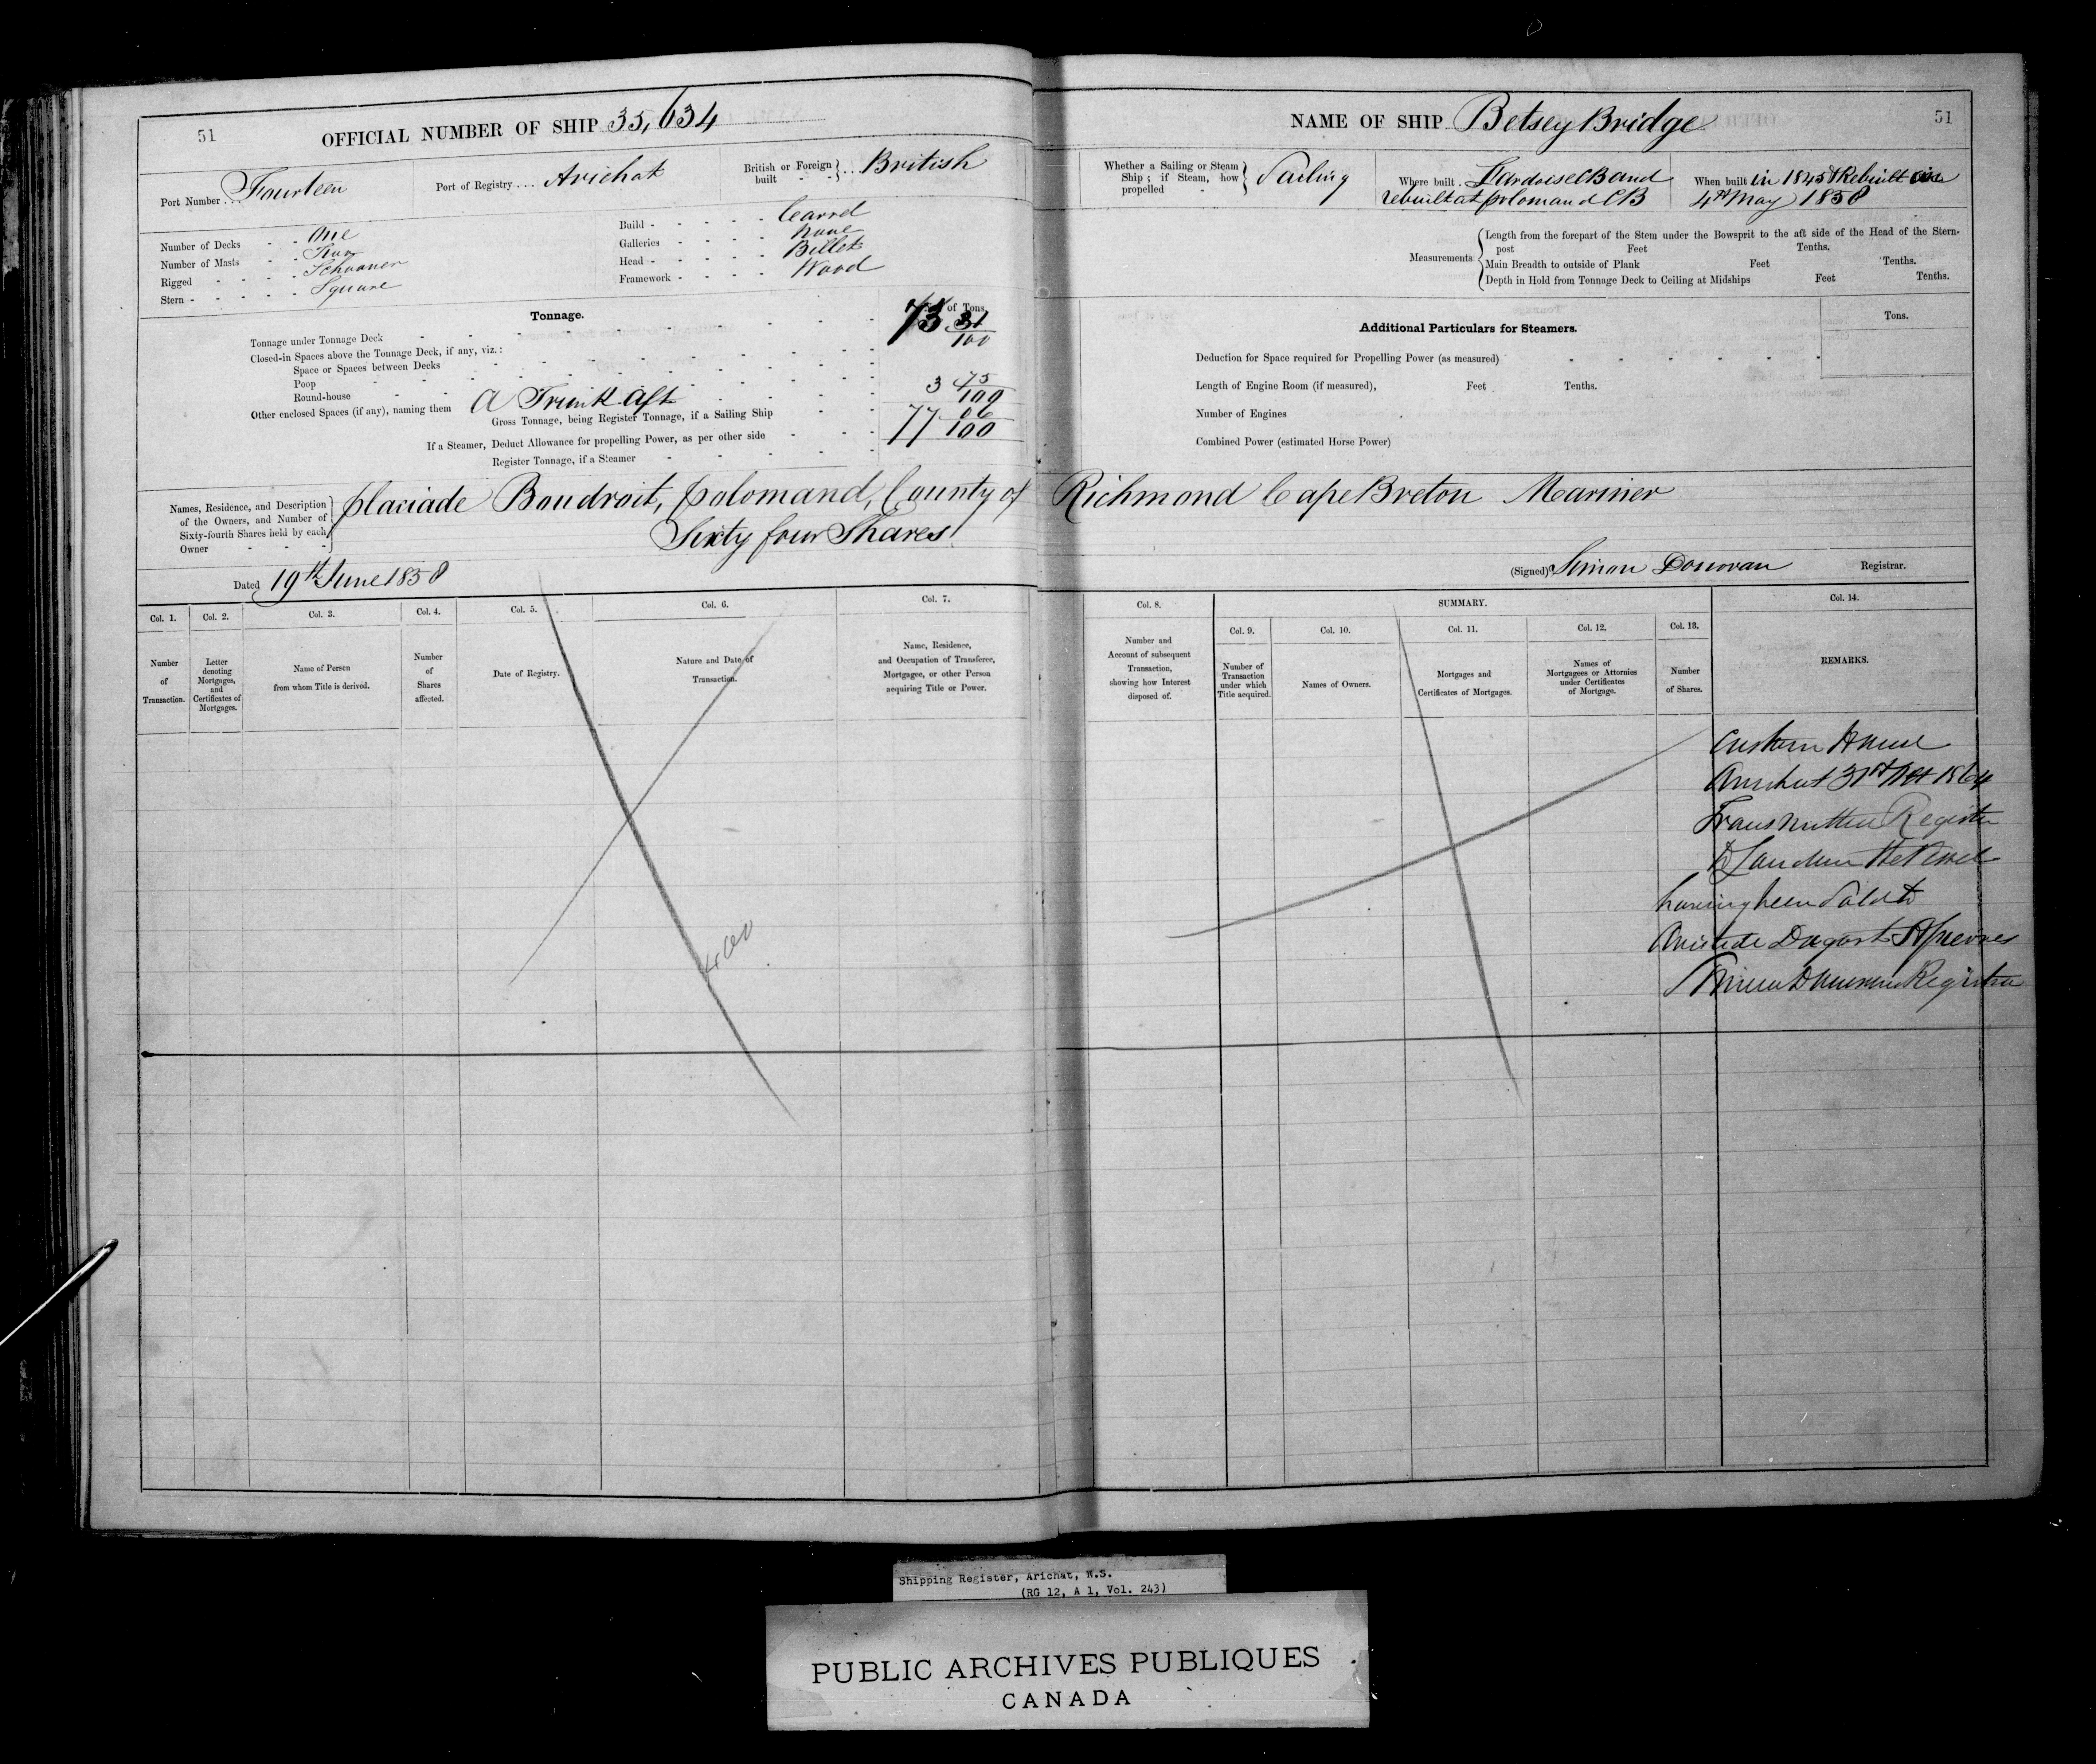 51
OFFICIAL NUMBER OF SHIP 35,634
Port Number ... Fourteen
Port of Registry .... Arichat
British or Foreign built - - } ... British
Number of Decks - - One
Number of Masts - - Two
Rigged - - - - Schooner
Stern - - - - - Square
Build - - - - - Carvel
Galleries - - - - None
Head - - - - - Billet
Framework - - - - Wood
Tonnage.
of Tons.
Tonnage under Tonnage Deck 73 31/100
Closed-in Spaces above the Tonnage Deck, if any, viz.:
Space or Spaces between Decks
Poop
Round-house
Other enclosed Spaces (if any), naming them A Trunk Aft 3 75/100
Gross Tonnage, being Register Tonnage, if a Sailing Ship 77 06/100
If a Steamer, Deduct Allowance for propelling Power, as per other side
Register Tonnage, if a Steamer
NAME OF SHIP Betsey Bridge
51
Whether a Sailing or Steam Ship; if Steam, how propelled - } Sailing
Where built . Lardoise CB and
rebuilt at polomand CB
When built in 1845 & Rebuilt on
4th May 1858
Measurements { Length from the forepart of the Stem under the Bowsprit to the aft side of the Head of the Stern-
post Feet Tenths.
Main Breadth to outside of Plank Feet Tenths.
Depth in Hold from Tonnage Deck to Ceiling at Midships Feet Tenths.
Additional Particulars for Steamers.
Tons.
Deduction for Space required for Propelling Power (as measured)
Length of Engine Room (if measured), Feet Tenths.
Number of Engines
Combined Power (estimated Horse Power)
Names, Residence, and Description
of the Owners, and Number of
Sixty-fourth Shares held by each
Owner - - -
placiade Boudroit, polomand, County of Richmond Cape Breton Mariner
Sixty four Shares
Dated 19th June 1858
(Signed) Simon Donovan Registrar.
Col. 1. Col. 2. Col. 3. Col. 4. Col. 5. Col. 6. Col. 7.
Number of Transaction.
Letter denoting Mortgages, and Certificates of Mortgages.
Name of Person from whom Title is derived.
Number of Shares affected.
Date of Registry.
Nature and Date of Transaction.
Name, Residence, and Occupation of Transferee, Mortgagee, or other Person acquiring Title or Power.
Col. 8. SUMMARY. Col. 14.
Col. 9. Col. 10. Col. 11. Col. 12. Col. 13.
Number and Account of subsequent Transaction, showing how Interest disposed of.
Number of Transaction under which Title acquired.
Names of Owners.
Mortgages and Certificates of Mortgages.
Names of Mortgagees or Attornies under Certificates of Mortgage.
Number of Shares.
REMARKS.
Custom House
Arichat 31st 1864
Transmitted Register
to London the Vessel
having been Sold to
Registrar
Shipping Register, Arichat, N.S.
(RG 12, A 1, Vol. 243)
PUBLIC ARCHIVES PUBLIQUES
CANADA